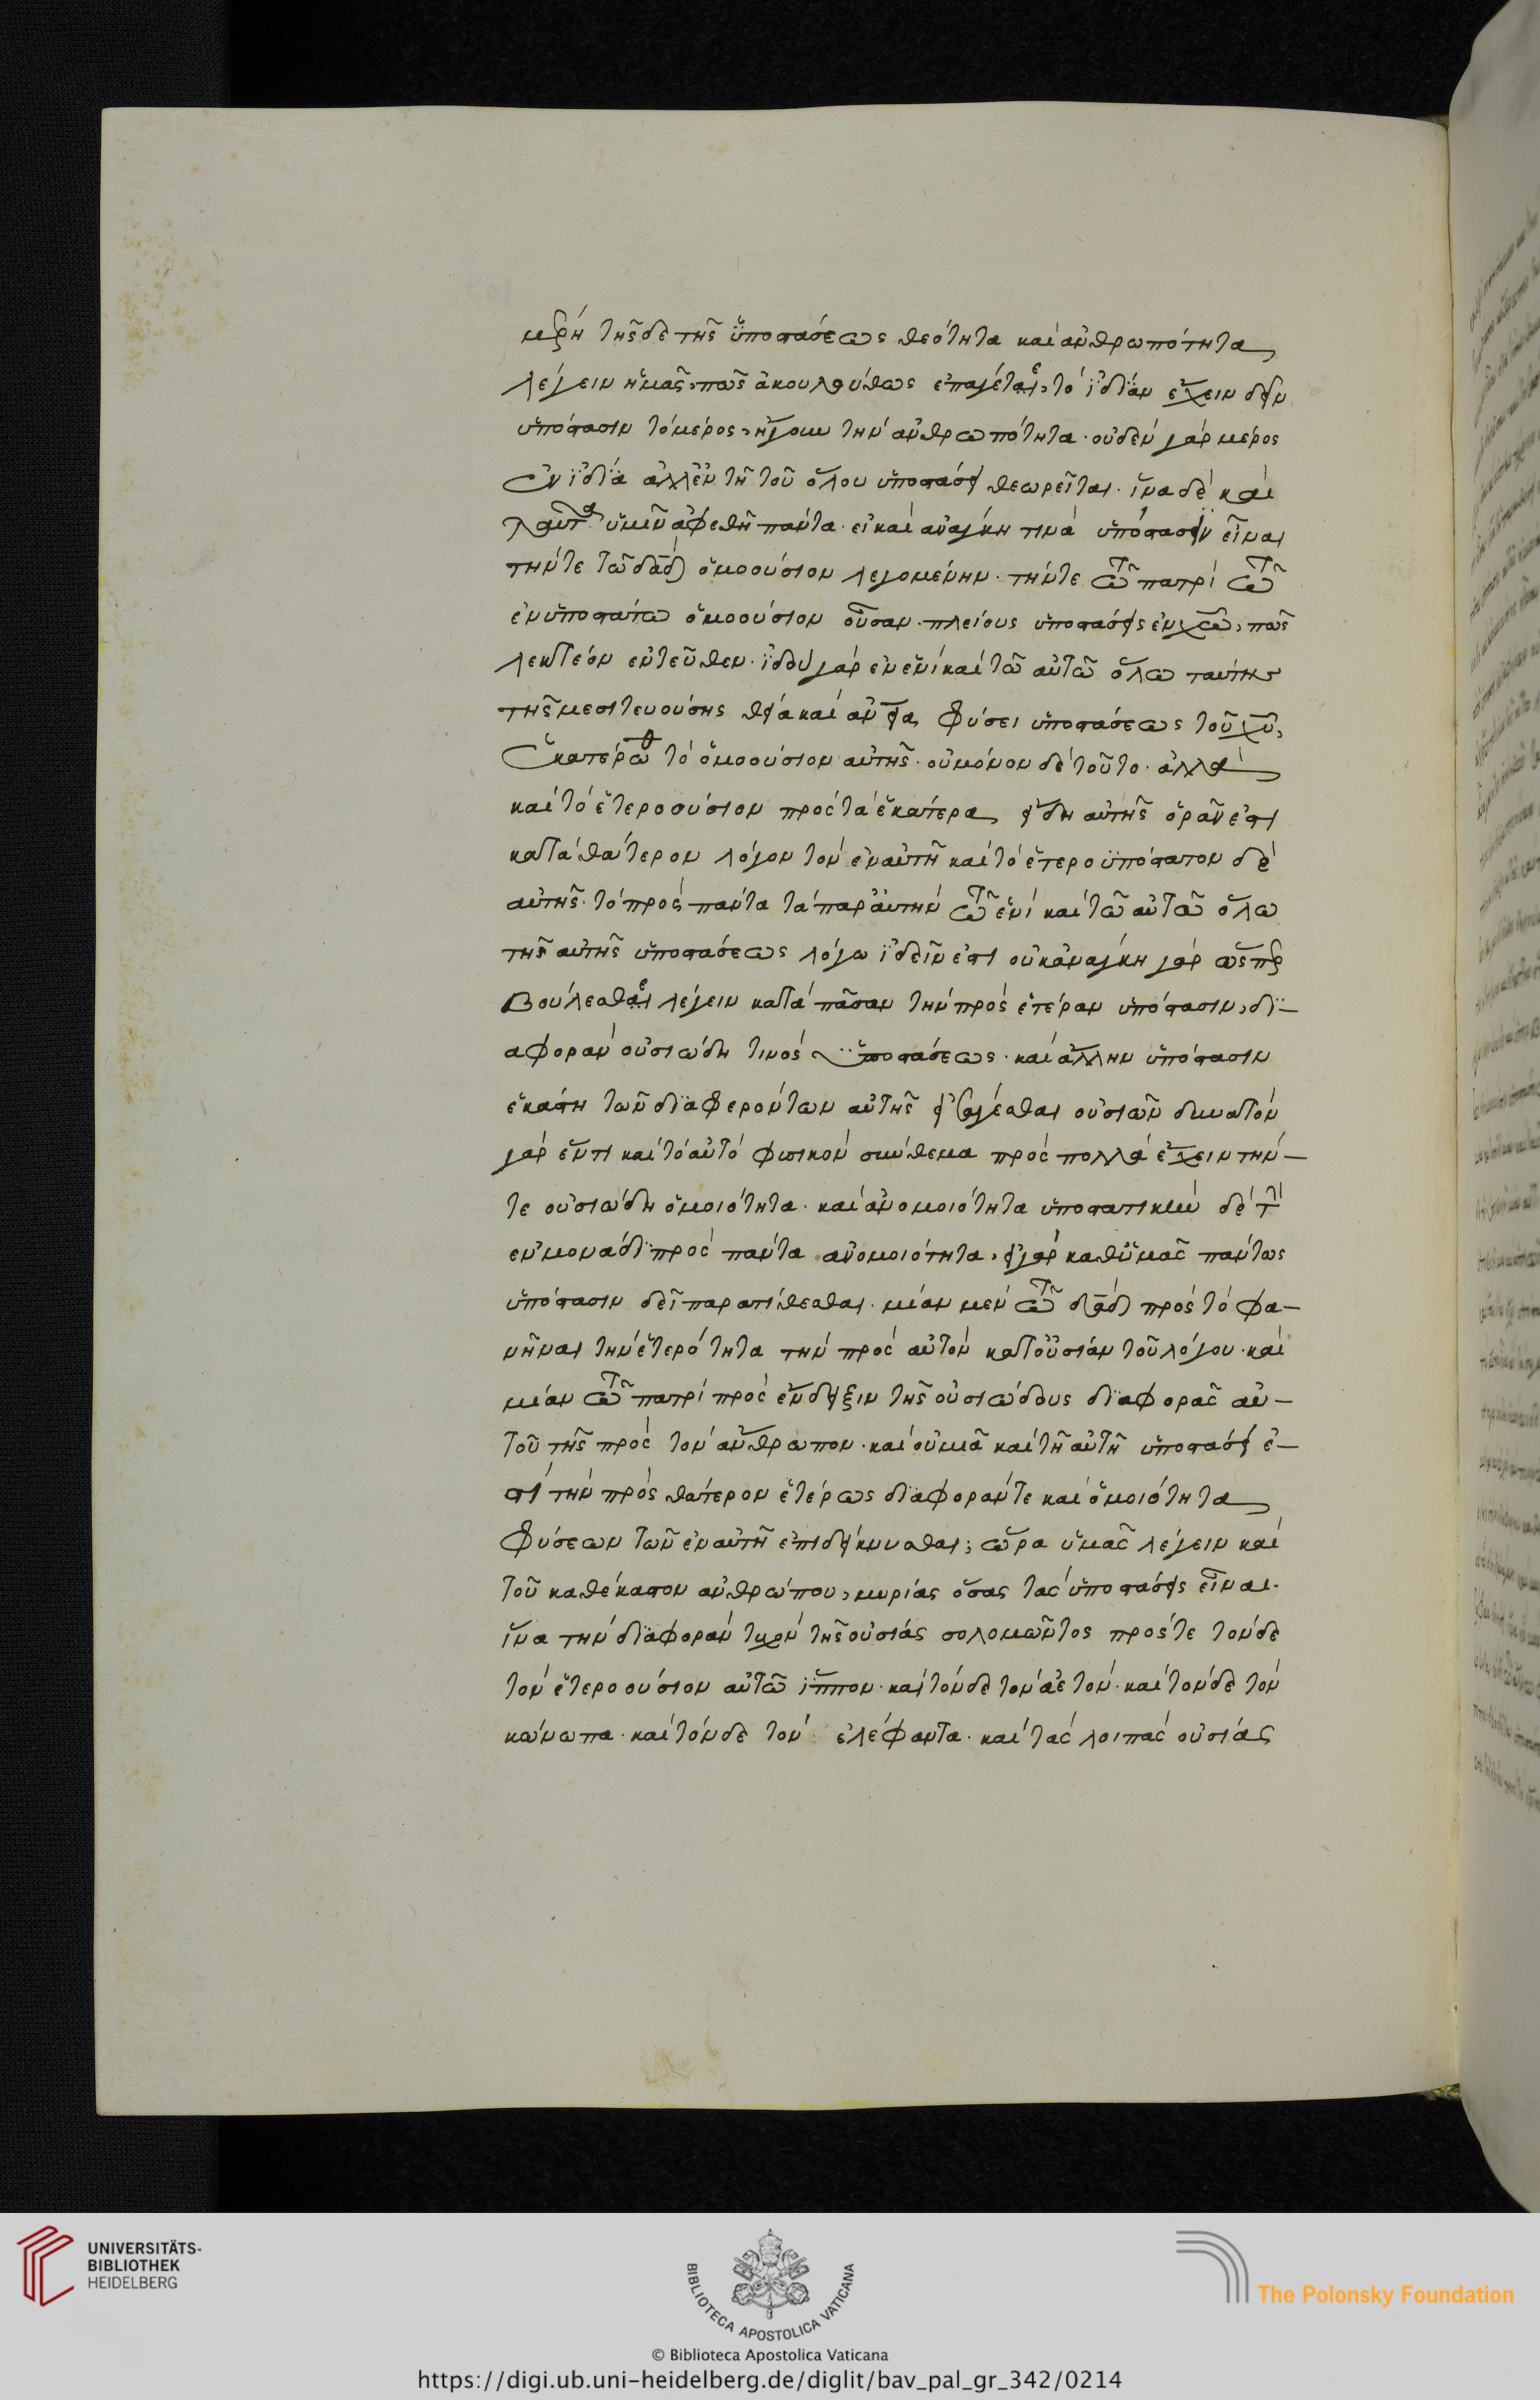 μέρη τῆσδε τῆς ὑποστάσεως θεότητα καὶ ἀνθρωπότητα
λέγειν ἡμᾶς, πῶς ἀκολούθως ἐπαγέται, τὸ ἰδίαν ἔχειν δεῖν
ὑπόστασιν τὸ μέρος, ἤγουν τὴν ἀνθρωπότητα. οὐδὲν γὰρ μέρος
ἐν ἰδία ἀλλ' ἐν τῆ τοῦ ὅλου ὑποστάσει θεωρεῖται. ἵνα δὲ καὶ
ταῦτα ὑμῖν ἀφεθῆ πάντα. εἰ καὶ ἀνάγκη τινὰ ὑπόστασιν εἶναι
τήντε τῶ δᾱδ ὁμοούσιον λεγομένην. τήντε τῶ πατρὶ τῶ
ἐνυποστάτω ὁμοούσιον οὖσαν. πλείους ὑποστάσεις ἐν χ̄ω, πῶς
λεκτέον ἐντεῦθεν. ἰδοὺ γὰρ ἐν ἑνὶ καὶ τῶ αὐτῶ ὅλω ταύτης
τῆς μεσιτευούσης θεία καὶ ἀνεία φύσει ὑποστάσεως τοῦ χ̄υ,
ἑκατέρωθ τὸ ὁμοούσιον αὐτῆς. οὐ μόνον δὲ τοῦτο. ἀλλὰ
καὶ τὸ ἑτεροούσιον πρὸς τὰ ἑκάτερα εἴδη αὐτῆς ὁρᾶν ἐστι
κατὰ θάτερον λόγον τὸν ἐν αὐτῆ καὶ τὸ ἑτεροϋπόστατον δὲ
αὐτῆς. τὸ πρὸς πάντα τὰ παρ' αὐτὴν τῶ ἑνὶ καὶ τῶ αὐτῶ ὅλω
τῆς αὐτῆς ὑποστάσεως λόγω ἰδεῖν ἐστι οὐκ ἀνάγκη γὰρ ὥσπερ
βούλεσθαι λέγειν κατὰ πᾶσαν τὴν πρὸς ἑτέραν ὑπόστασιν, δι-
αφορὰν οὐσιώδη τινὸς ὑποστάσεως. καὶ ἄλλην ὑπόστασιν
ἑκάστη τῶν διαφερόντων αὐτῆς εἰσάγεσθαι οὐσιῶν δυνατὸν
γὰρ ἕν τι καὶ τὸ αὐτὸ φυσικὸν σύνθεμα πρὸς πολλὰ ἔχειν τήν-
τε οὐσιώδη ὁμοιότητα. καὶ ἀνομοιότητα ὑποστατικὴν δὲ τὴν
ἐν μονάδι πρὸς πάντα ἀνομοιότητα. εἰ γὰρ καθ' ὑμᾶς πάντως
ὑπόστασιν δεῖ παρατίθεσθαι. μίαν μὲν τῶ δᾱδ πρὸς τὸ φα-
νῆναι τὴν ἑτερότητα τὴν πρὸς αὐτὸν κατ' οὐσίαν τοῦ λόγου. καὶ
μίαν τῶ πατρὶ πρὸς ἔνδειξιν τῆς οὐσιώδους διαφορᾶς αὐ-
τοῦ τῆς πρὸς τὸν ἄνθρωπον. καὶ οὐ μιᾶ καὶ τῆ αὐτῆ ὑποστάσει ἐ-
στὶ τὴν πρὸς θάτερον ἑτέρως διαφοράντε καὶ ὁμοιότητα
φύσεων τῶν ἐν αὐτῆ ἐπιδείκνυσθαι; ὥρα ὑμᾶς λέγειν καὶ
τοῦ καθέκαστον ἀνθρώπου, μυρίας ὅσας τὰς ὑποστάσεις εἶναι.
ἵνα τὴν διαφορὰν τυχὸν τῆς οὐσίας σολομῶντος πρόστε τόνδε
τὸν ἑτεροούσιον αὐτῶ ἵππον. καὶ τόνδε τὸν ἀετὸν. καὶ τόνδε τὸν
κώνωπα. καὶ τόνδε τὸν ἐλέφαντα. καὶ τὰς λοιπὰς οὐσίας
UNIVERSITÄTS-
BIBLIOTHEK
HEIDELBERG
BIBLIOTECA APOSTOLICA VATICANA
The Polonsky Foundation
© Biblioteca Apostolica Vaticana
https://digi.ub.uni-heidelberg.de/diglit/bav_pal_gr_342/0214